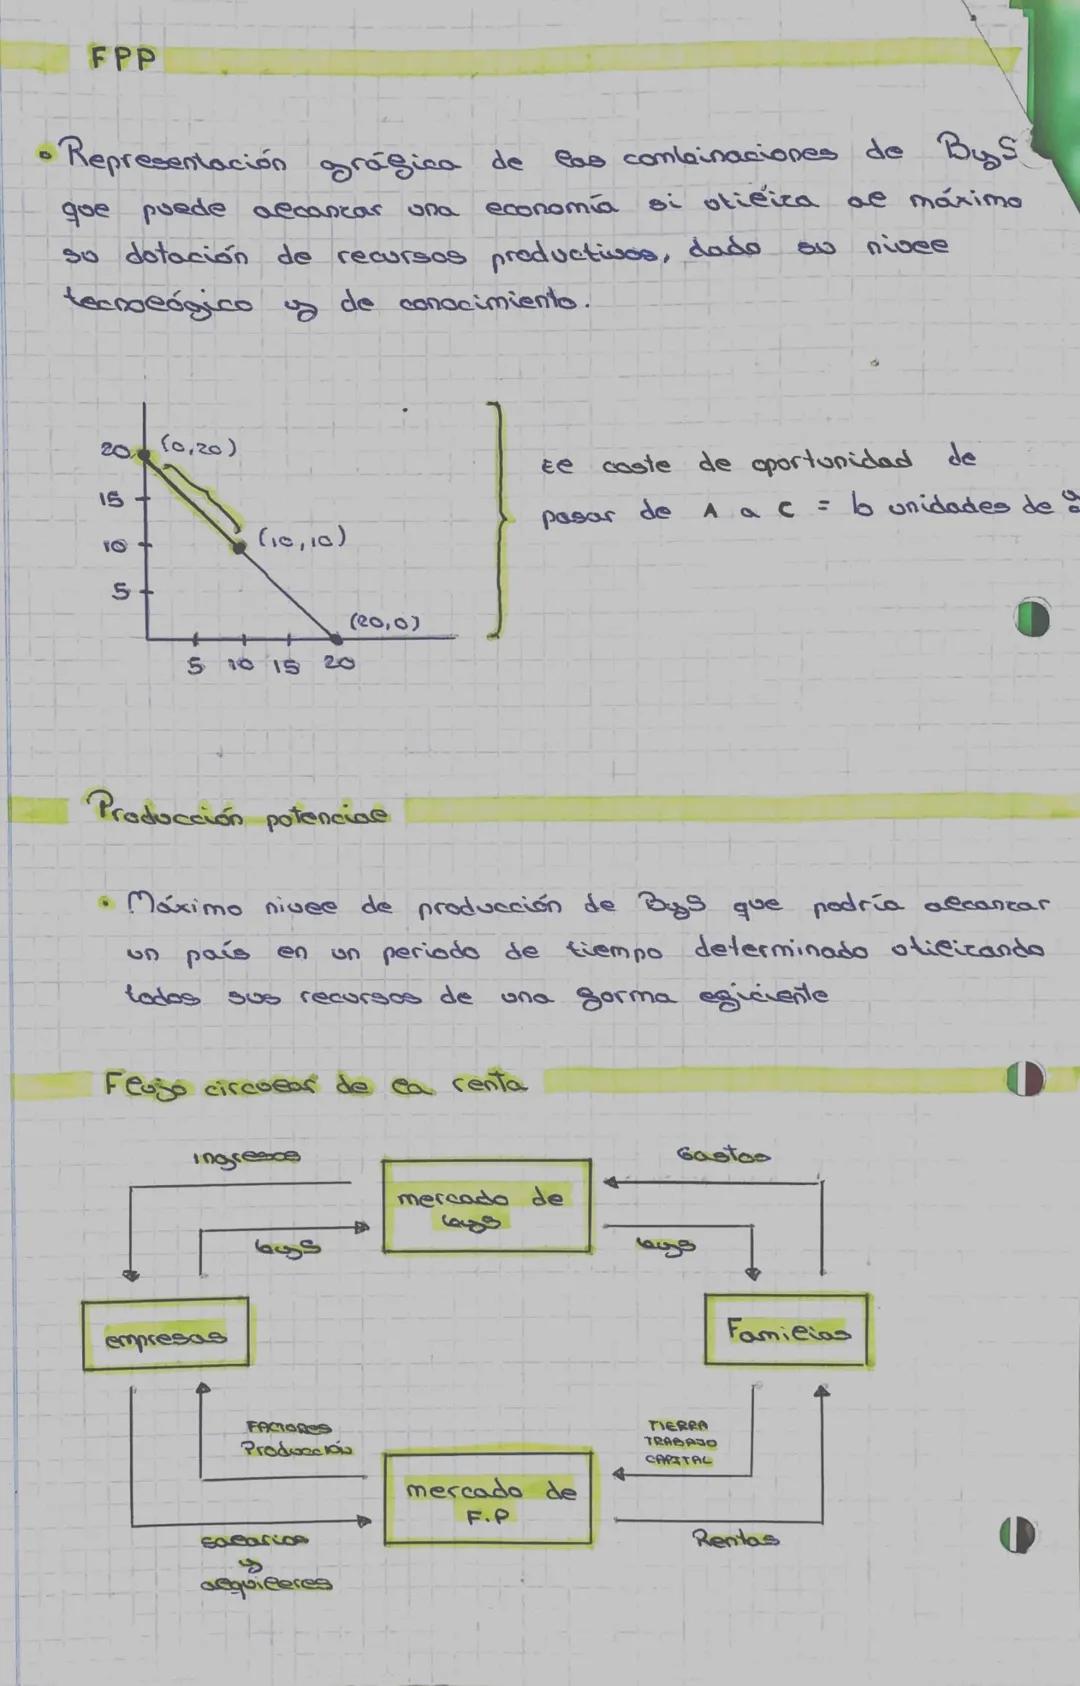 FPP
• Representación gráfica de las combinaciones de ByS
que puede alcanzar una economía si utiliza al máximo
su dotación de recursos productivos, dado su nivel
tecnológico y de conocimiento.
20 (0,20)
15
10 (10,10)
5
(20,0)
5 10 15 20
El coste de oportunidad de
pasar de A a C = b unidades de
Producción potencial
• Máximo nivel de producción de ByS que podría alcanzar
un país en un periodo de tiempo determinado utilizando
todos sus recursos de una forma eficiente
Flujo circular de la renta
Ingresos
Gastos
mercado de
byS
byS
byS
empresas
Familias
FACTORES
Producción
TIERRA
TRABAJO
CAPITAL
mercado de
F.P
salarios
y
alquileres
Rentas